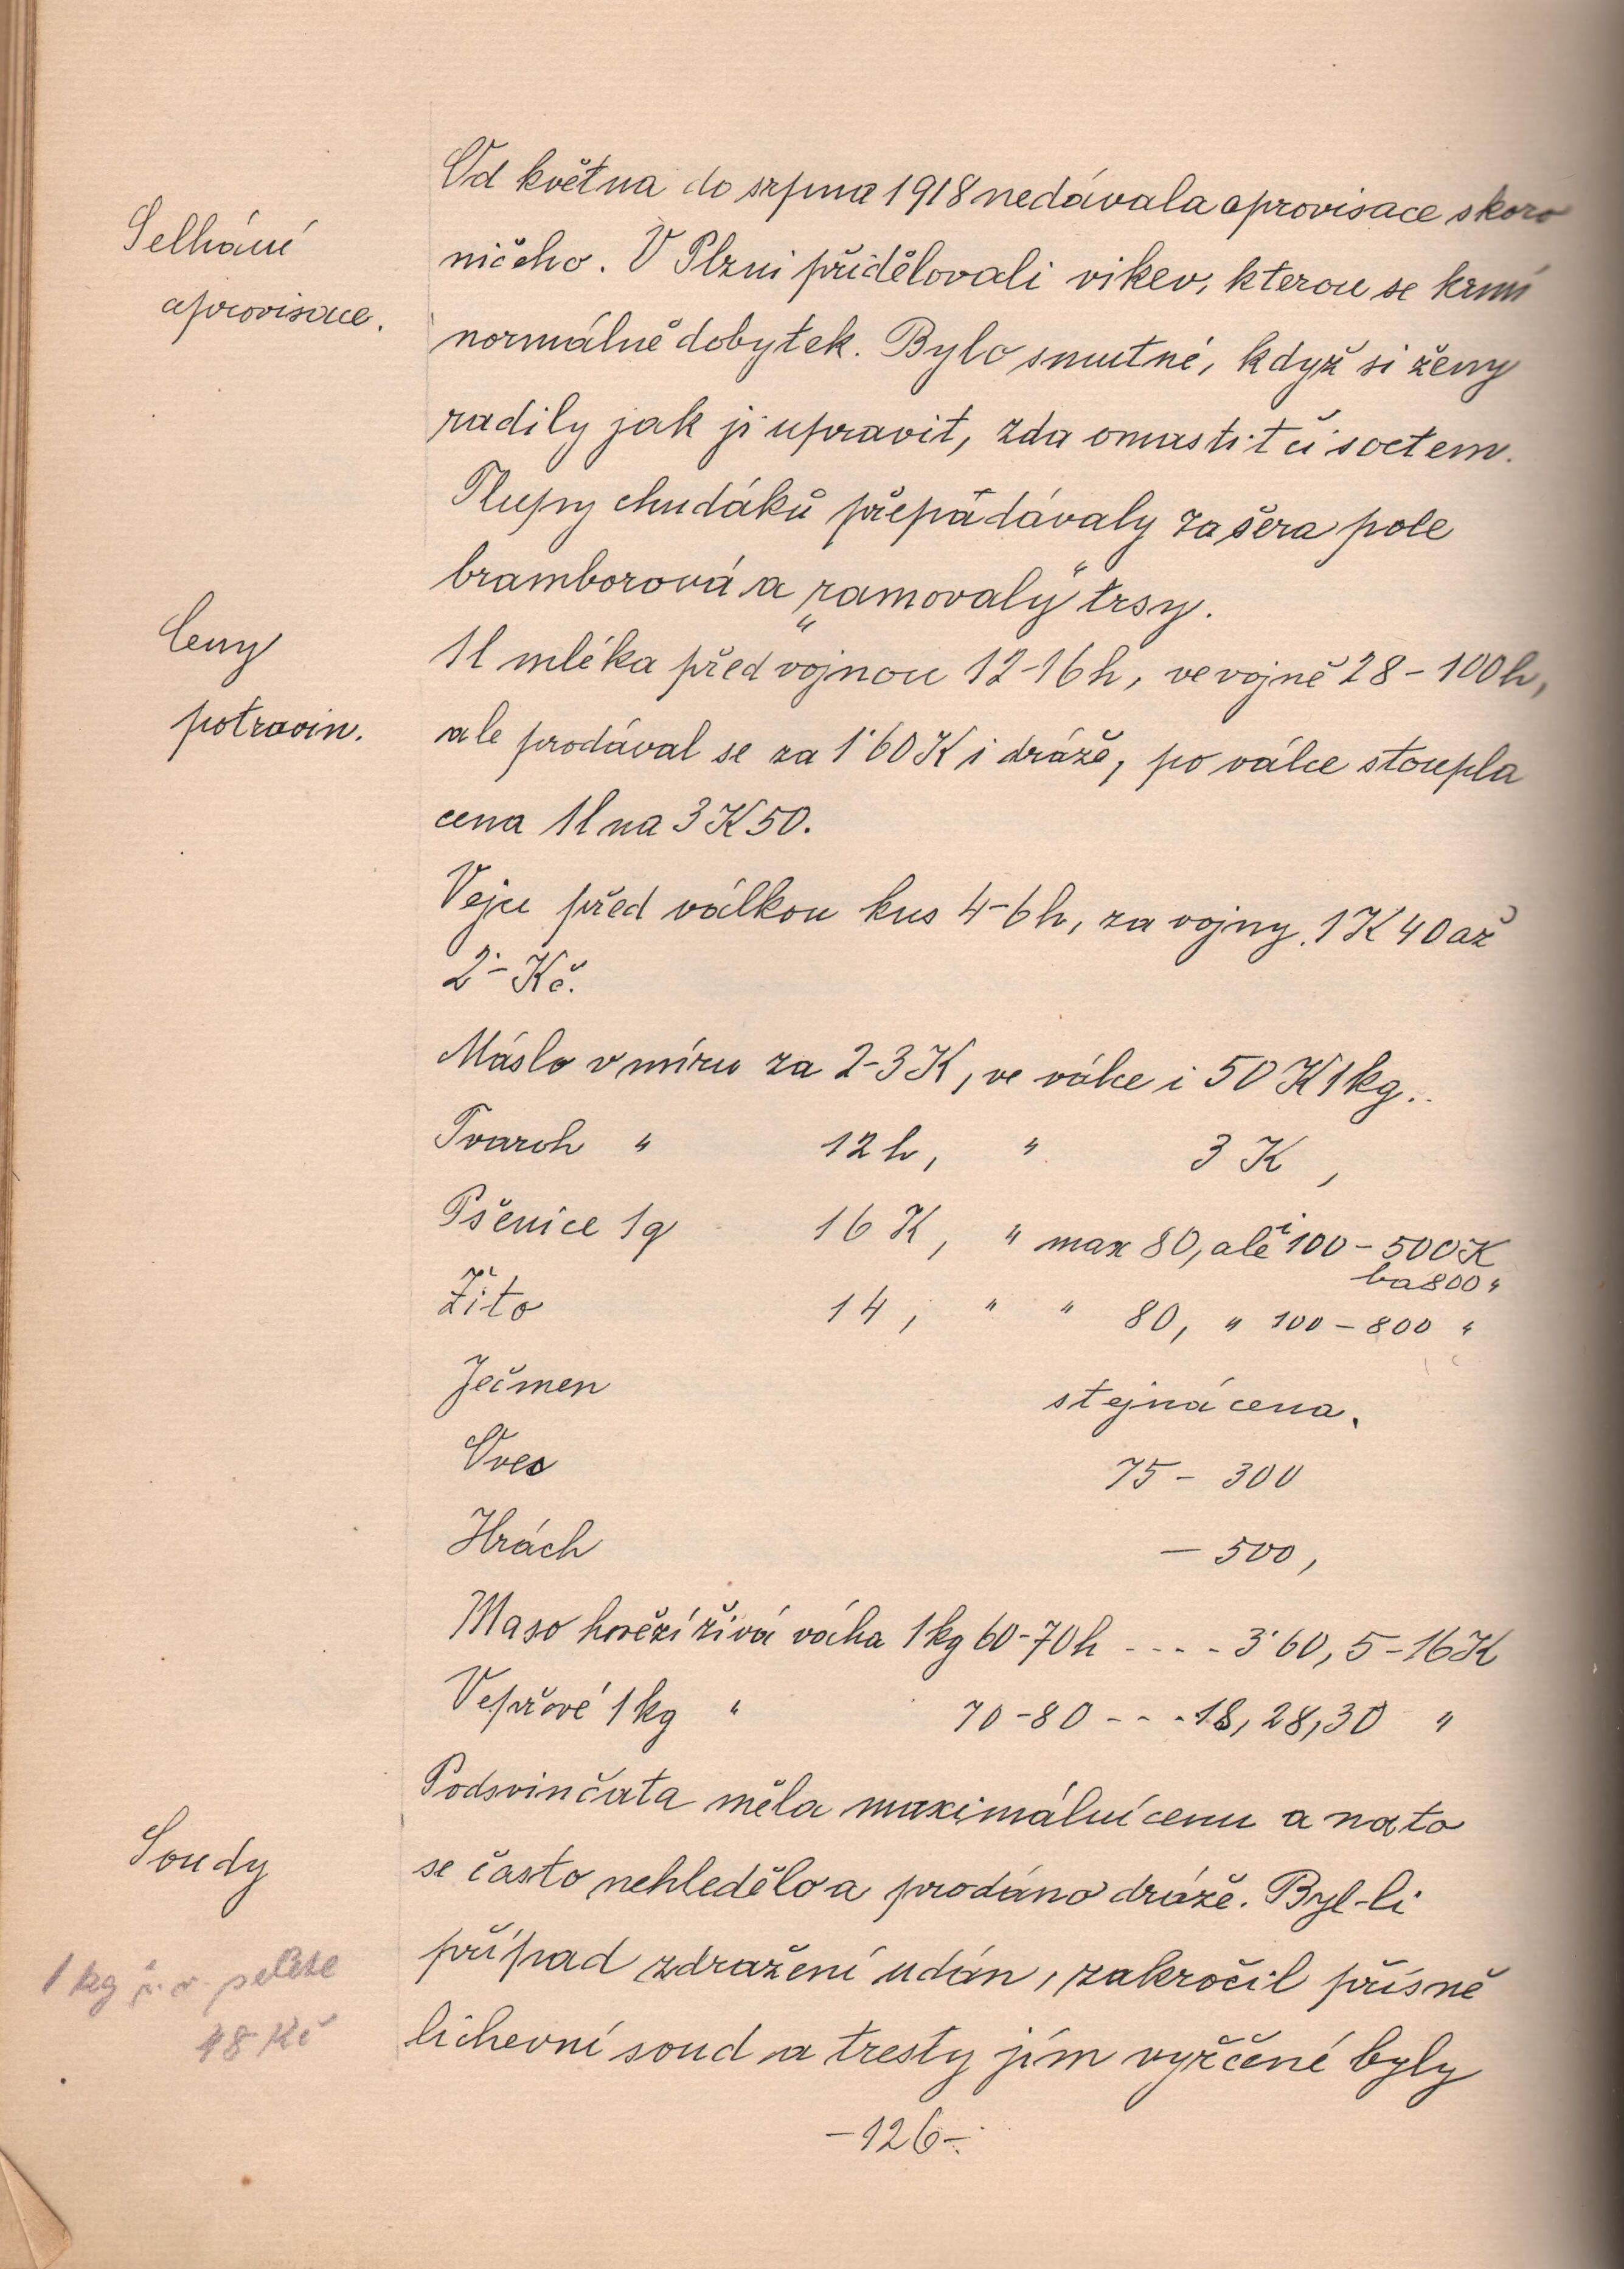 Od května do srpna 1918 nedávala aprovisace skoro
Selhání
ničeho. V Plzni přidělovali vikev, kterou se krmí
aprovisace.
normálně dobytek. Bylo smutné, když si ženy
radily jak ji upravit, zda omastit či s octem.
Tlupy chudáků přepadávaly za šera pole
bramborová a „ramovaly" trsy.
Ceny
1 l mléka před vojnou 12-16 h, ve vojně 28 - 100 h,
potravin.
ale prodával se za 1˙60 K i dráže, po válce stoupla
cena 1 l na 3 K 50.
Veju před válkou kus 4-6 h, za vojny 1 K 40 až
2˙- Kč.
Máslo v míru za 2-3 K, ve válce i 50 K 1 kg.
Tvaroh " 12 h, " 3 K,
Pšenice 1 q 16 K, " max 80, ale i 100 - 500 K
ba 800 "
Žito 14, " " 80, " 100 - 800 "
Ječmen stejná cena.
Oves 75 - 300
Hrách - 500,
Maso hovězí živá váha 1 kg 60-70 h - - - - 3˙60, 5-16 K
Vepřové 1 kg " 70-80 - - - 18, 28, 30 "
Podsvinčata měla maximální cenu a na to
Soudy
se často nehledělo a prodáno dráže. Byl-li
případ zdražení udán, zakročil přísně
1 kg ž. v. selete
18 Kč
lichevní soud a tresty jím vyřčené byly
-126-